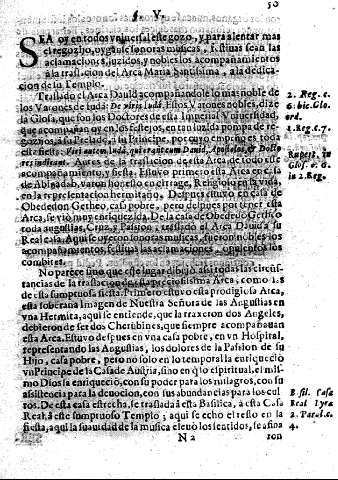 §. V.
50
SEA oy en todos vniuersal este gozo, y para alentar mas
el regozijo, oyganse sonoras musicas, festiuas sean las
aclamaciones, luzidos, y nobles los acompañamientos
à la traslacion del Arca Maria Santissima, a la dedica-
cion de su Templo.
Traslado el Arca Dauid acompañandole lo mas noble de
los Varones de Iudà: De viris Iudà. Estos Varones nobles, dize
la Glosa, que son los Doctores de esta Imperial Vniuersidad,
que acompañan oy en los festejos, en tan luzida pompa de re-
gozijos, a su Prelado, a su Principe, porque
esta fiesta. Viri autem Iudà, qui erant cum Dauid,
Antes de la traslacion de esta Arca de todo este
acompañamiento, y fiesta. Estuuo primero esta Arca en casa
de Abinadab, varon honesto en el trage, Religioso en la vida,
en la representacion hermitaño. Despues estuuo en casa de
Obededon Getheo, casa pobre, pero despues por tener esta
Arca, se viò muy enriquezida. De la casa de Obededon Getheo
toda augustias, Cruz, y Passion, traslado el Arca Dauid a su
Real casa. Aqui se
acompañamientos, festiuas las aclamaciones, opulentos los
combites.
No parece sino que este lugar dibujò assi todas las circũs-
tancias de la traslacion de esta preciosissima Arca, como las
de esta sumptuosa fiesta. Primero estuuo esta prodigiosa Arca,
esta soberana imagen de Nuestra Señora de las Augustias en
vna Hermita, aqui se entiende, que la traxeron dos Angeles,
debieron de ser dos Cherubines, que siempre acompañauan
esta Arca. Estuuo despues en vna casa pobre, en vn Hospital,
representando las Augustias, los dolores de la Passion de su
Hijo, casa pobre, pero no solo en lo temporal la enriqueciò
vn Principe de la Casa de Austria, sino en q̃ lo espiritual, el mis-
mo Dios la enriqueciò, con su poder para los milagros, con su
assistencia para la deuocion, con sus abundancias para los cul-
tos. De esta casa estrecha, se traslada à esta Basilica, à esta Casa
Real, à este sumptuoso Templo; aqui se echò el resto en la
fiesta, aqui la suauidad de la musica eleuò los sentidos, se aña
N 2
ron
2. Reg. c.
6. bic. Glo.
ord.
1. Reg. c. 7.
Rupert. in
Glos. c. 6.
in 2. Reg.
Basil. Casa
Real Lyra
2. Paral. c.
4.